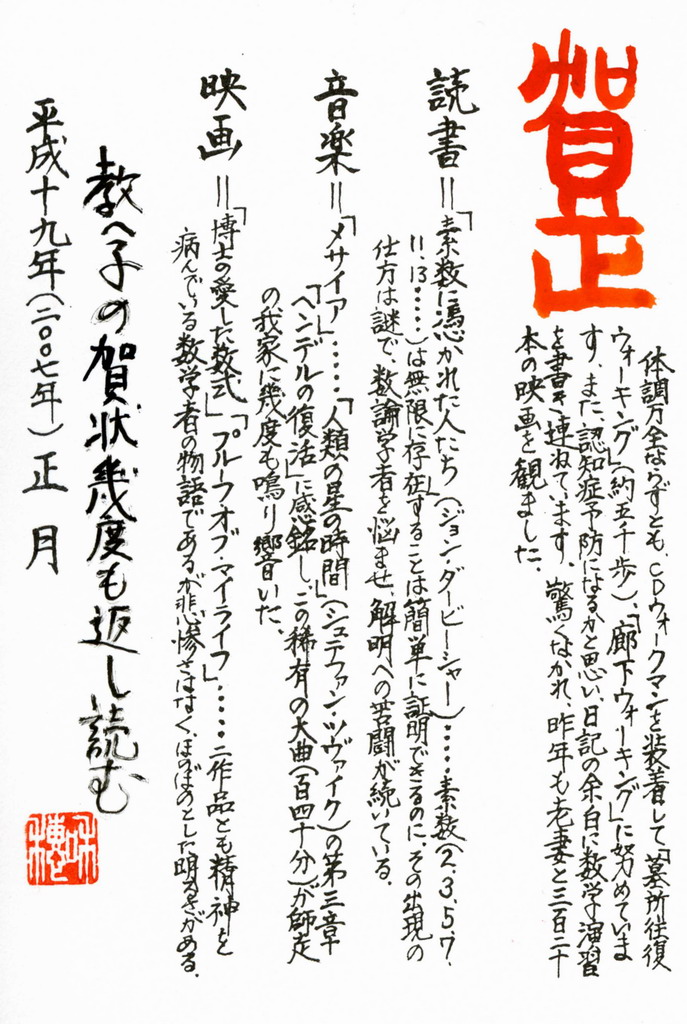 賀正
体調万全ならずとも、CDウォークマンを装着して「墓所往復
ウォーキング」(約五千歩)、「廊下ウォーキング」に努めていま
す。また、認知症予防になるかと思い、日記の余白に数学演習
を書き連ねています。驚くなかれ、昨年も老妻と三百二十
本の映画を観ました。
読書=「素数に憑かれた人たち(ジョン・ダービーシャー)‥‥素数(2.3.5.7.
11.13‥‥‥)は無限に存在」することは簡単に証明できるのに、その出現の
仕方は謎で、数論学者を悩ませ、解明への苦闘が続いている。
音楽=「メサイア」‥‥‥「人類の星の時間」(シュテファン・ツヴァイク)の第三章
「ヘンデルの復活」に感銘し、この稀有の大曲(百四十分)が師走
の我家に幾度も鳴り響いた。
映画=「博士の愛した数式」「プルーフオブ・マイライフ」‥‥‥二作品とも精神を
病んでいる数学者の物語であるが悲惨さはなく、ほのぼのとした明るさがある。
教へ子の賀状幾度も返し読む
平成十九年(二〇〇七年)正月